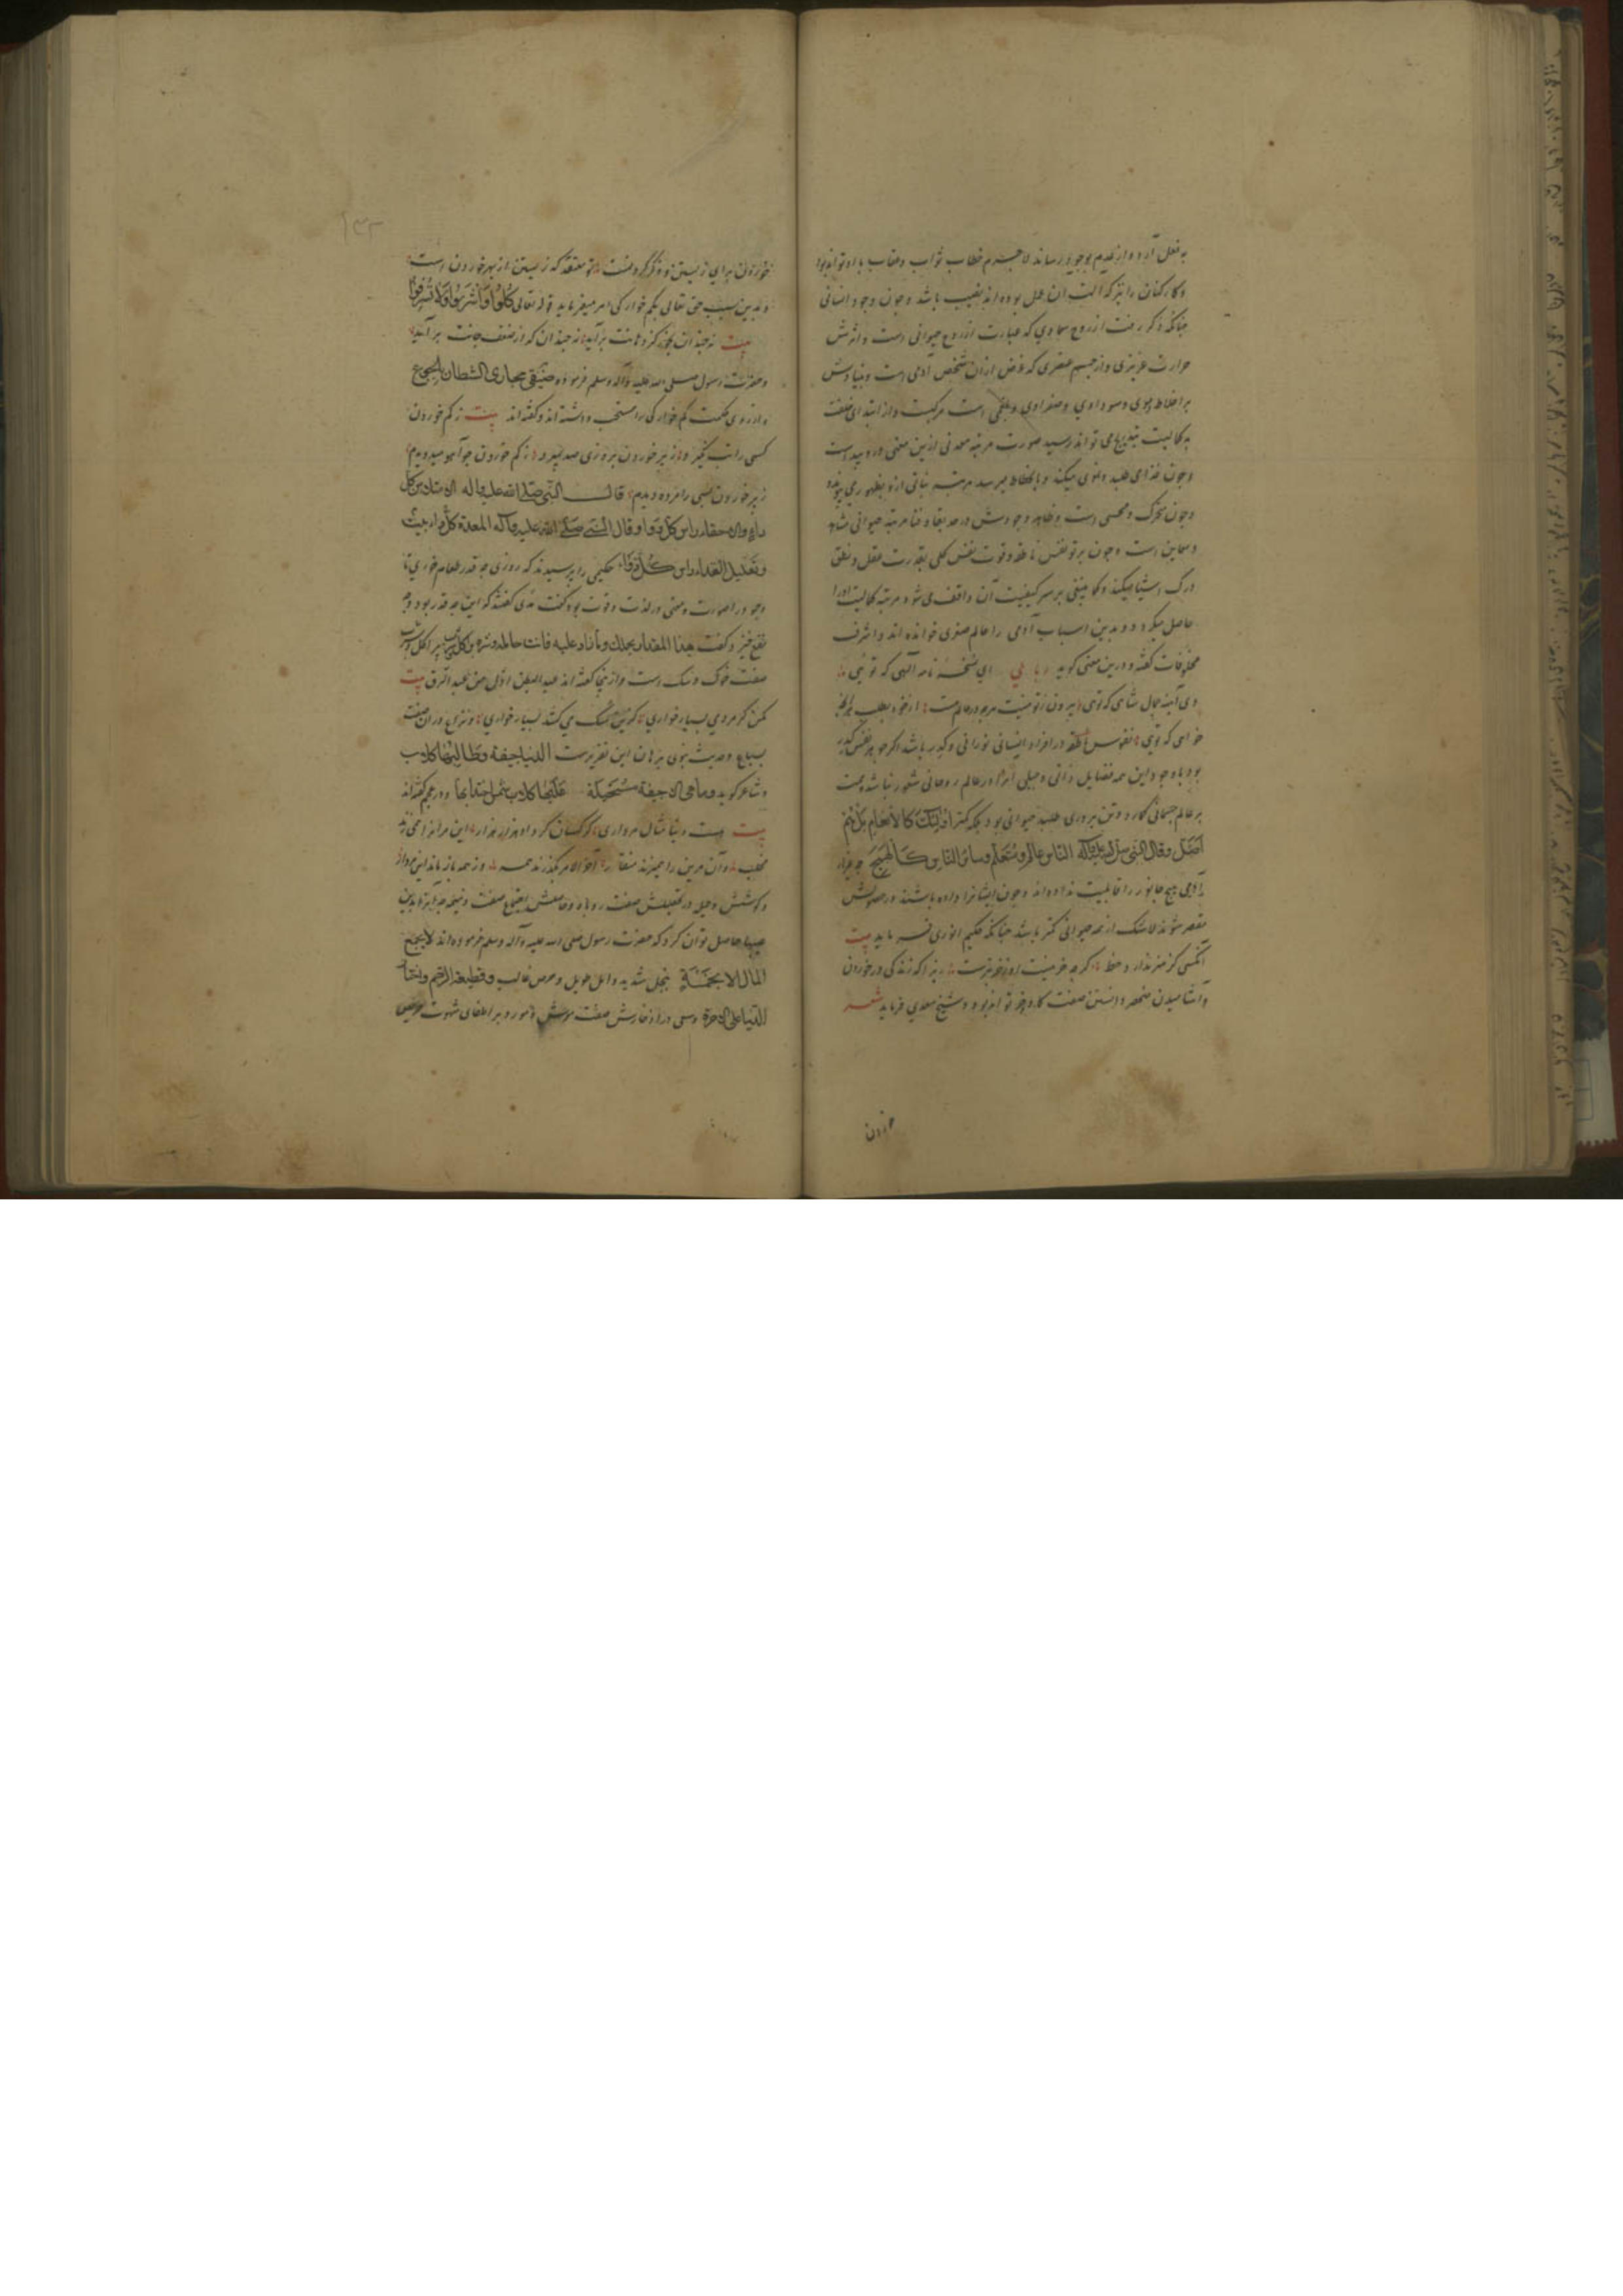 به فعل آرد و از عدم بوجود رساند لاجرم خطاب ثواب و عقاب با او تواند بود
و کارکنان را نیز که آلت آن عمل بوده اند نصیب باشد و چون وجود انسانی
چنانکه ذکر رفت از روح سماوی که عبارت از روح حیوانی است و اثرش
حرارت غریزی و از جسم عنصری که غرض ازان شخص آدمی است و بنیادش
بر اخلاط دموی و سوداوی و صفراوی و بلغمی است مرکبست و از ابتدای خلقت
به کمالیت بتدریج می تواند رسید صورت مرتبه معدنی ازین معنی درو پیداست
و چون غذا می طلبد و نمو می کند و بانحطاط میرسد مرتبه نباتی ازو بظهور می پیوندد
و چون متحرک و محسس است و ظاهر وجودش در صدد بقا و فنا مرتبه حیوانی مشاهد
و معاین است و چون پرتو نفس ناطقه و قوت نفس کلی بقدرت عقل و نطق
درک اشیا میکند و کما ینبغی بر سر کیفیت آن واقف می شود مرتبه کمالیت او را
حاصل میگردد و بدین اسباب آدمی را عالم صغری خوانده اند و اشرف
مخلوقات گفته و درین معنی گوید رباعی ای نسخه نامه الهی که توئی
وی آینه جمال شاهی که توئی بیرون ز تو نیست هرچه در عالم هست از خود بطلب هر آنچه
خواهی که توئی نفوس ناطقه در افراد انسانی نورانی و کدر باشد اگر جوهر نفس کدر
بود با وجود این همه فضایل ذاتی و جبلی او را در عالم روحانی شعور نباشد همت
بر عالم جسمانی گمارد و تن پروری طلبد حیوانی بود بلکه کمتر اولئک کالانعام بل هم
اضل و قال النبی صلی الله علیه وآله الناس عالم و متعلم و سائر الناس کالهمج چه غیر از
آدمی هیچ جانور را قابلیت نداده اند و چون ایشانرا داده باشند و در حصولش
مقصر شوند لاشک از همه حیوانی کمتر باشد چنانکه حکیم انوری فرماید بیت
آنکسی کز هنر ندارد حظ گرچه خر نیست او ز خر بترست زیرا که زندگی در خوردن
و آشامیدن منحصر دانستن صفت گاو و خر تواند بود و شیخ سعدی فرماید شعر
خوردن
خوردن برای زیستن و ذکر کردنست تو معتقد که زیستن از بهر خوردن است
و بدین سبب حق تعالی بکم خوارگی امر میفرماید قوله تعالی کلوا واشربوا ولا تسرفوا
بیت نه چندان بخور کز دهانت برآید نه چندان که از ضعف جانت برآید
و حضرت رسول صلی الله علیه وآله وسلم فرموده ضیقی مجاری الشیطان بالجوع
و از روی حکمت کم خوارگی را مستحب داشته اند و گفته اند بیت ز کم خوردن
کسی را تب نگیرد ز پر خوردن بروزی صد بمیرد ز کم خوردن چو آهو میدویدم
ز پر خوردن بسی را مرده دیدم قال النبی صلی الله علیه وآله الامتلا من کل
داء والاحتماء راس کل دوا و قال النبی صلی الله علیه وآله المعدة کل داء بیت
و تقلیل الغذاء راس کل دواء حکیمی را پرسیدند که روزی چه قدر طعام خوری تا
وجود را صورت و معنی در لذت و قوت بود گفت مدی گفتند که این چه قدر بود و چه
نفع خیزد گفت هذا المقدار یحملک وما زاد علیه فانت حامله
صفت خوک و سگ است و ازینجا گفته اند عبد البطن اذل من عبد الرق بیت
مکن گر مردی بسیار خواری که سگ می کشد بسیار خواری و نزاع در آن صفت
سباع و حدیث نبوی برهان این تقریرست الدنیا جیفة و طالبها کلاب
و شاعر گوید و ما هی الا جیفة مستحیلة علیها کلاب همهن اجتذابها و در عجم گفته اند
بیت هست دنیا مثال مرداری کرکسان گرد او هزار هزار این مر آن را همی زند
مخلب و آن مر این را همیزند منقار آخر الامر بگذرند همه و ز همه باز ماند این مردار
و کوشش و حیل در تحصیلش صفت روباه و حاصلش اجتماع صفت و ذخیره
حاصل توان کرد که حضرت رسول صلی الله علیه وآله وسلم فرموده اند لا یجتمع
المال الا بخمسة ببخل شدید و امل طویل و حرص غالب و قطیعة الرحم و ایثار
الدنیا علی الآخرة و سعی در ادخارش صفت موش و مور و بر اطفای شهوت حریص